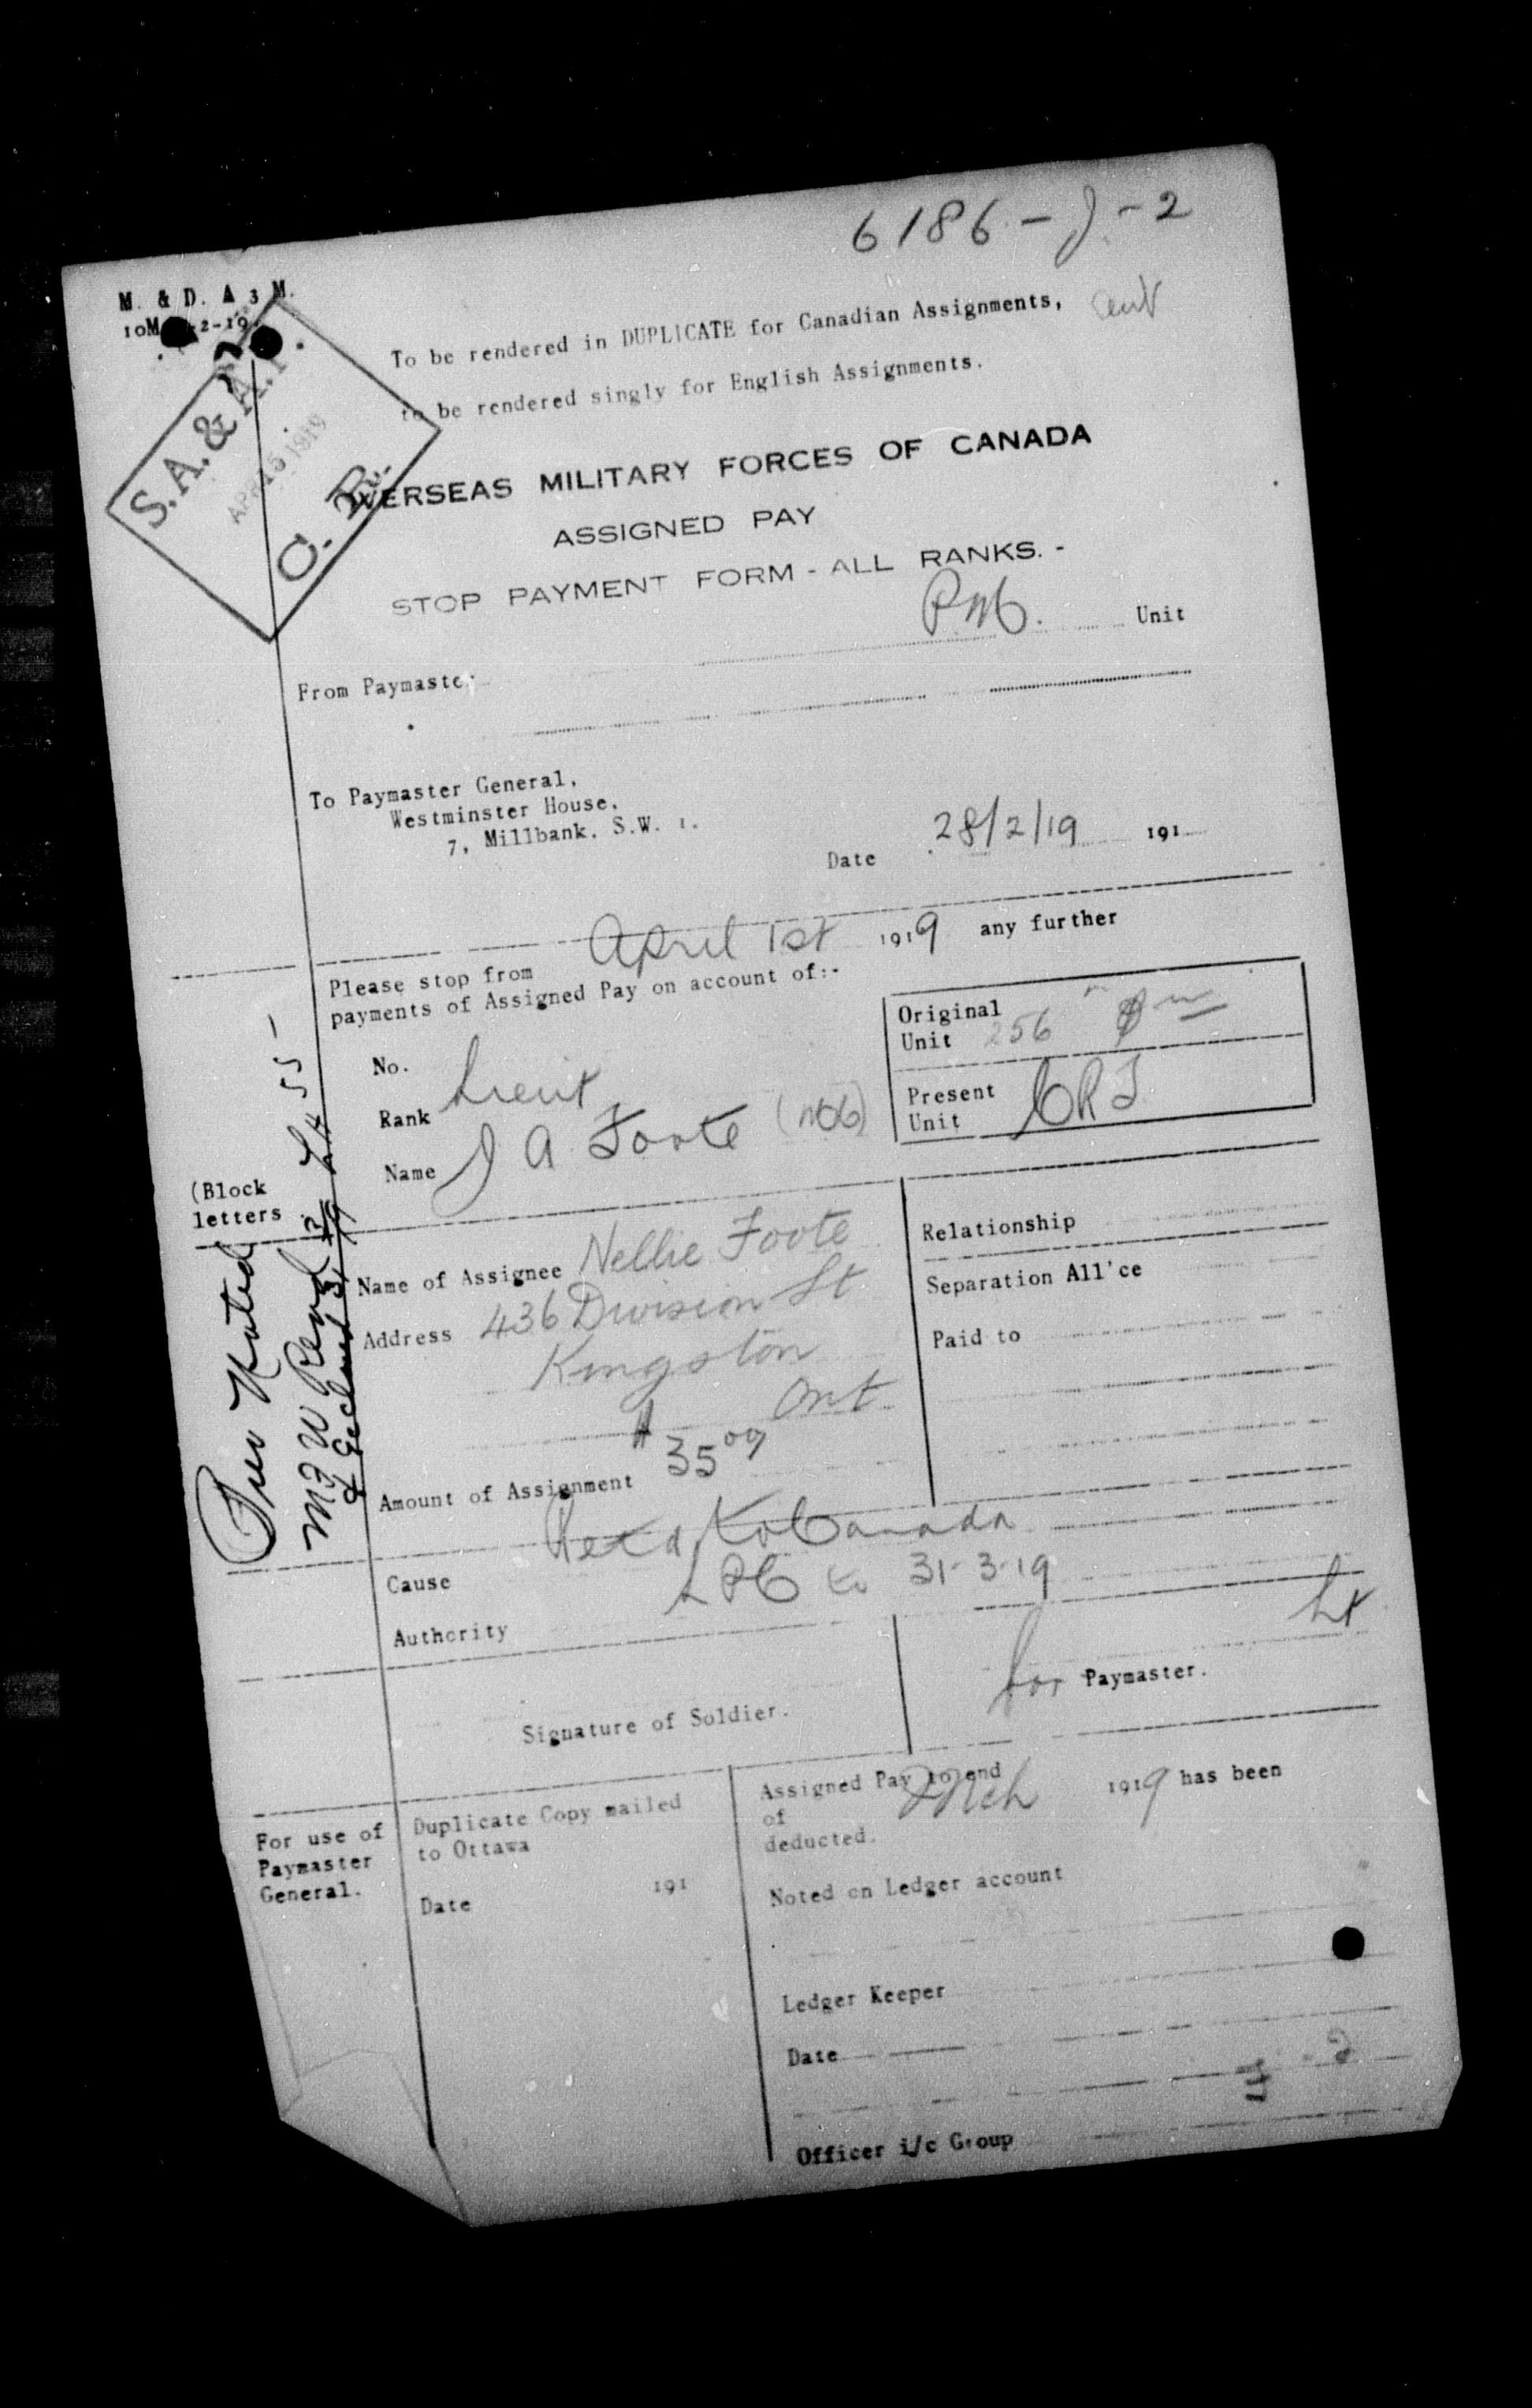 6186-J-2
M. & D. A 3 M.
10M 2-19.
S.A. & A.P.
APR 15 1919
C. R.
To be rendered in DUPLICATE for Canadian Assignments,
to be rendered singly for English Assignments.
OVERSEAS MILITARY FORCES OF CANADA
ASSIGNED PAY
STOP PAYMENT FORM - ALL RANKS. -
Unit
From Paymaster
To Paymaster General,
Westminster House,
7, Millbank, S.W. 1.
Date 28/2/19 191
Please stop from April 1st 1919 any further
payments of Assigned Pay on account of:-
Original
Unit 256
Present
Unit
No.
Rank Lieut
(Block
letters
Name J A Foote
Name of Assignee Nellie Foote
Address 436 Division St
Kingston
Ont
Relationship
Separation All'ce
Paid to
Amount of Assignment $ 35 00
Cause Retd to Canada
LPC to 31-3-19
Authority
Signature of Soldier.
Lt
for Paymaster.
For use of
Paymaster
General.
Duplicate Copy mailed
to Ottawa
Date 191
Assigned Pay to end
of Mch 1919 has been
deducted.
Noted on Ledger account
Ledger Keeper
Date
Officer i/c Group